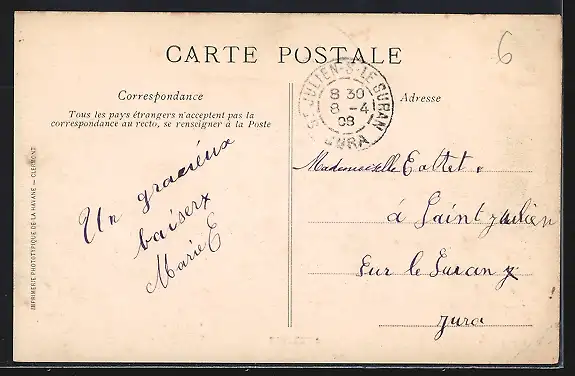 CARTE POSTALE
6
Correspondance
Tous les pays étrangers n'acceptent pas la
correspondance au recto, se renseigner à la Poste
Adresse
ST JULIEN-S-LE SURAN
8 30
8 -4
08
JURA
Un gracieux
baiser
Marie E
Mademoiselle
à Saint Julien
Sur le Suran
Jura
IMPRIMERIE PHOTOTYPIQUE DE LA HAVANE — CLERMONT